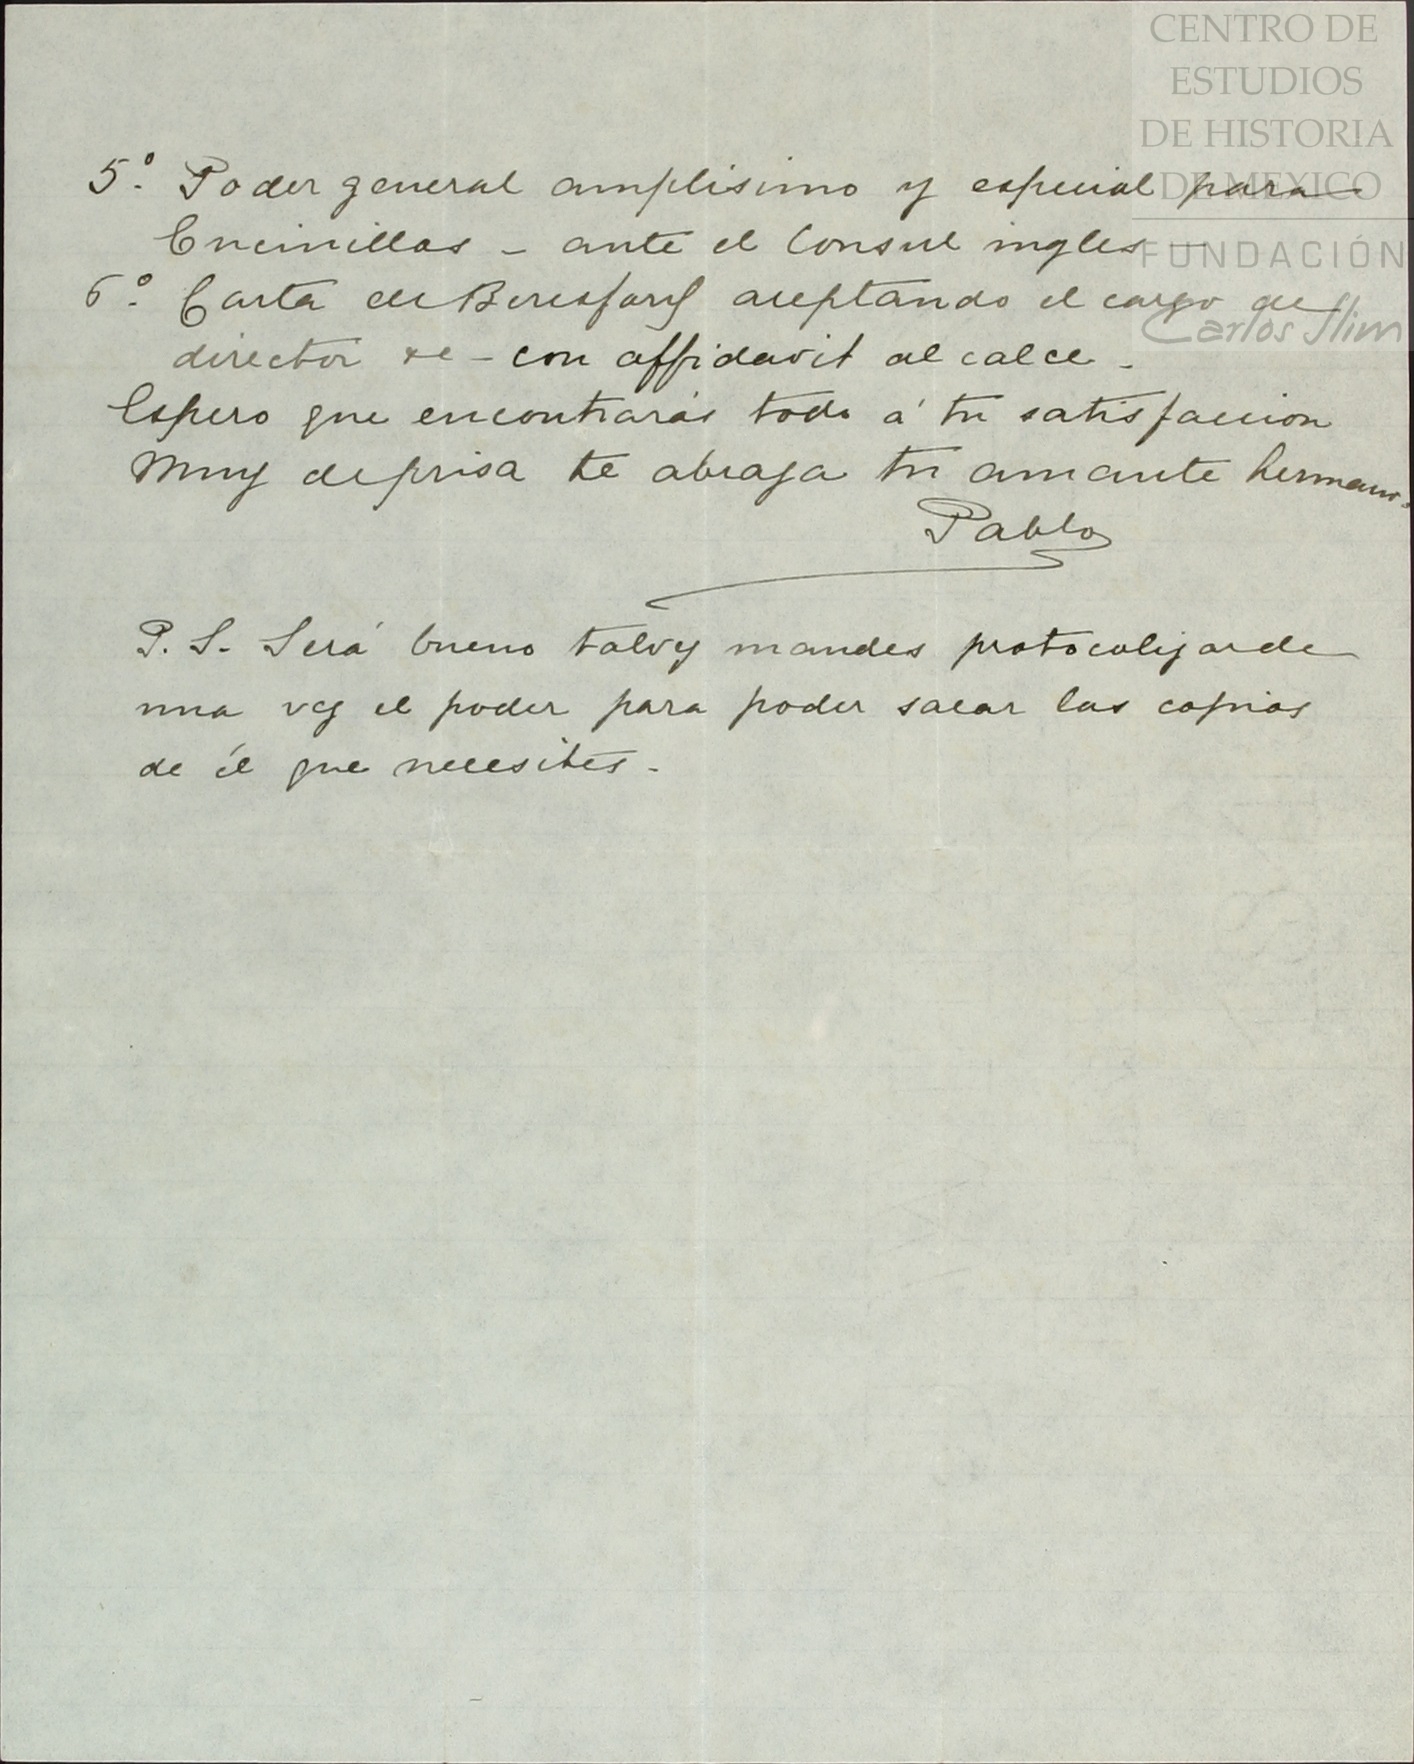 CENTRO DE
ESTUDIOS
DE HISTORIA
DE MEXICO
FUNDACIÓN
Carlos Slim
5º. Poder general amplisimo y especial para
Encinillas - ante el Consul ingles
6º. Carta de Beresford aceptando el cargo de
director &c - con affidavit al calce.
Espero que encontrarás todo á tu satisfaccion
Muy deprisa te abraza tu amante hermano.
Pablo
P. S. Será bueno talvez mandes protocolizar de
una vez el poder para poder sacar las copias
de él que necesites.